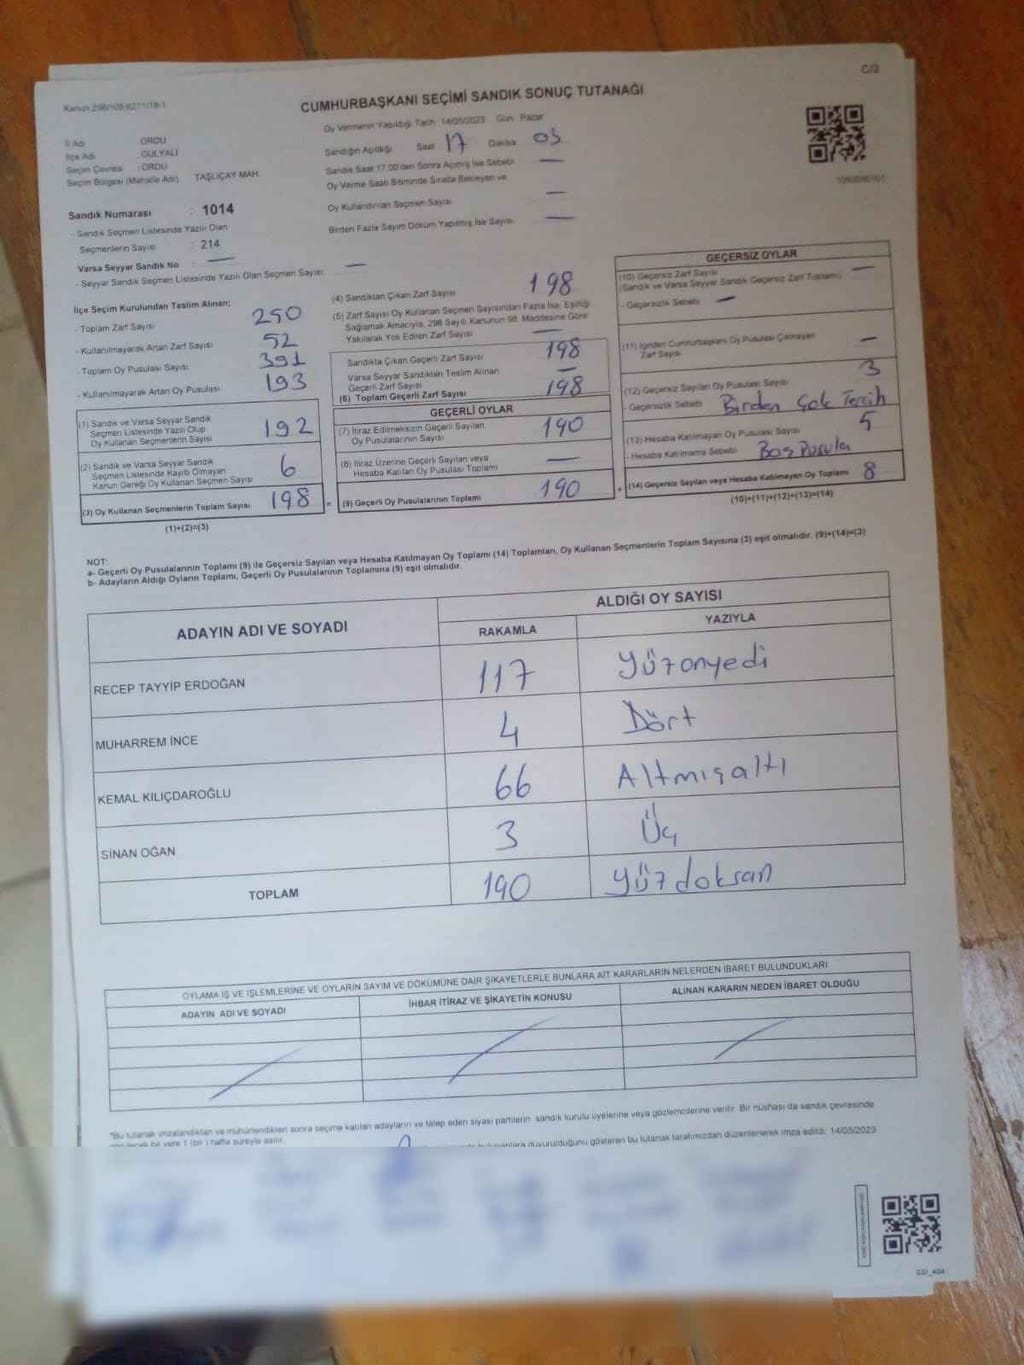 C/2
Kanun 298/105 6271/18-1
CUMHURBAŞKANI SEÇİMİ SANDIK SONUÇ TUTANAĞI
İl Adı : ORDU
İlçe Adı : GÜLYALI
Seçim Çevresi : ORDU
Seçim Bölgesi (Mahalle Adı) TAŞLIÇAY MAH.
Sandık Numarası : 1014
- Sandık Seçmen Listesinde Yazılı Olan
Seçmenlerin Sayısı : 214
Varsa Seyyar Sandık No : —
- Seyyar Sandık Seçmen Listesinde Yazılı Olan Seçmen Sayısı: —
Oy Vermenin Yapıldığı Tarih : 14/05/2023 Gün : Pazar
Sandığın Açıldığı Saat 17 Dakika 03
Sandık Saat 17.00'den Sonra Açılmış İse Sebebi —
Oy Verme Saati Bitiminde Sırada Bekleyen ve
Oy Kullandırılan Seçmen Sayısı —
Birden Fazla Sayım Döküm Yapılmış İse Sayısı —
İlçe Seçim Kurulundan Teslim Alınan;
- Toplam Zarf Sayısı 250
- Kullanılmayarak Artan Zarf Sayısı 52
- Toplam Oy Pusulası Sayısı 391
- Kullanılmayarak Artan Oy Pusulası 193
(1) Sandık ve Varsa Seyyar Sandık
Seçmen Listesinde Yazılı Olup
Oy Kullanan Seçmenlerin Sayısı 192
(2) Sandık ve Varsa Seyyar Sandık
Seçmen Listesinde Kayıtlı Olmayan
Kanun Gereği Oy Kullanan Seçmen Sayısı 6
(3) Oy Kullanan Seçmenlerin Toplam Sayısı 198 =
(1)+(2)=(3)
(4) Sandıktan Çıkan Zarf Sayısı 198
(5) Zarf Sayısı Oy Kullanan Seçmen Sayısından Fazla İse, Eşitliği
Sağlamak Amacıyla, 298 Sayılı Kanunun 98. Maddesine Göre
Yakılarak Yok Edilen Zarf Sayısı —
Sandıkta Çıkan Geçerli Zarf Sayısı 198
Varsa Seyyar Sandıktan Teslim Alınan
Geçerli Zarf Sayısı —
(6) Toplam Geçerli Zarf Sayısı 198
GEÇERLİ OYLAR
(7) İtiraz Edilmeksizin Geçerli Sayılan
Oy Pusulalarının Sayısı 190
(8) İtiraz Üzerine Geçerli Sayılan veya
Hesaba Katılan Oy Pusulası Toplamı —
(9) Geçerli Oy Pusulalarının Toplamı 190 +
GEÇERSİZ OYLAR
(10) Geçersiz Zarf Sayısı
(Sandık ve Varsa Seyyar Sandık Geçersiz Zarf Toplamı) —
- Geçersizlik Sebebi —
(11) İçinden Cumhurbaşkanı Oy Pusulası Çıkmayan
Zarf Sayısı —
(12) Geçersiz Sayılan Oy Pusulası Sayısı 3
- Geçersizlik Sebebi Birden Çok Tercih
(13) Hesaba Katılmayan Oy Pusulası Sayısı 5
- Hesaba Katılmama Sebebi Boş Pusula
(14) Geçersiz Sayılan veya Hesaba Katılmayan Oy Toplamı 8
(10)+(11)+(12)+(13)=(14)
NOT:
a- Geçerli Oy Pusulalarının Toplamı (9) ile Geçersiz Sayılan veya Hesaba Katılmayan Oy Toplamı (14) Toplamları, Oy Kullanan Seçmenlerin Toplam Sayısına (3) eşit olmalıdır. (9)+(14)=(3)
b- Adayların Aldığı Oyların Toplamı, Geçerli Oy Pusulalarının Toplamına (9) eşit olmalıdır.
ADAYIN ADI VE SOYADI
ALDIĞI OY SAYISI
RAKAMLA YAZIYLA
RECEP TAYYİP ERDOĞAN 117 Yüzonyedi
MUHARREM İNCE 4 Dört
KEMAL KILIÇDAROĞLU 66 Altmışaltı
SİNAN OĞAN 3 Üç
TOPLAM 190 Yüzdoksan
OYLAMA İŞ VE İŞLEMLERİNE VE OYLARIN SAYIM VE DÖKÜMÜNE DAİR ŞİKAYETLERLE BUNLARA AİT KARARLARIN NELERDEN İBARET BULUNDUKLARI
ADAYIN ADI VE SOYADI İHBAR İTİRAZ VE ŞİKAYETİN KONUSU ALINAN KARARIN NEDEN İBARET OLDUĞU
*Bu tutanak imzalandıktan ve mühürlendikten sonra seçime katılan adayların ve talep eden siyasi partilerin sandık kurulu üyelerine veya gözlemcilerine verilir. Bir nüshası da sandık çevresinde
bir yere 1 (bir) hafta süreyle asılır. duyurulduğunu gösteren bu tutanak tarafımızdan düzenlenerek imza edildi. 14/05/2023